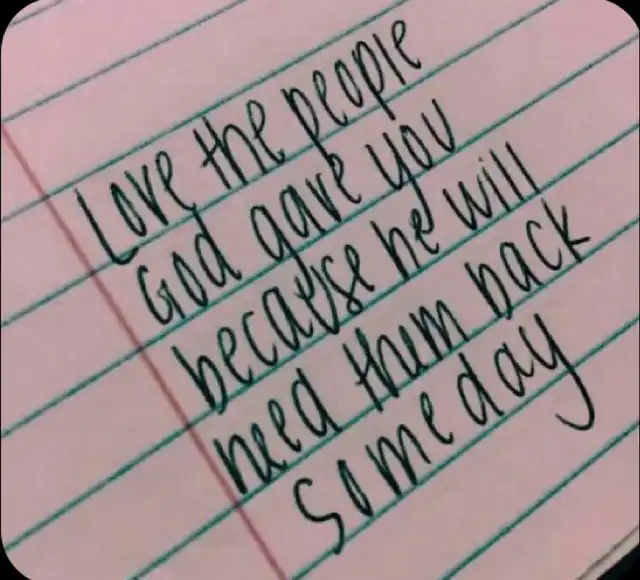 Love the people
God gave you
because he will
need them back
someday